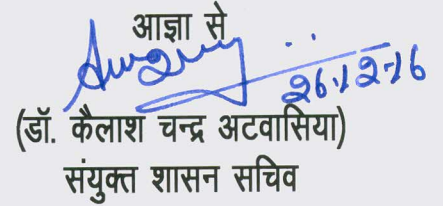 आज्ञा से
26.12.16
(डॉ. कैलाश चन्द्र अटवासिया)
संयुक्त शासन सचिव